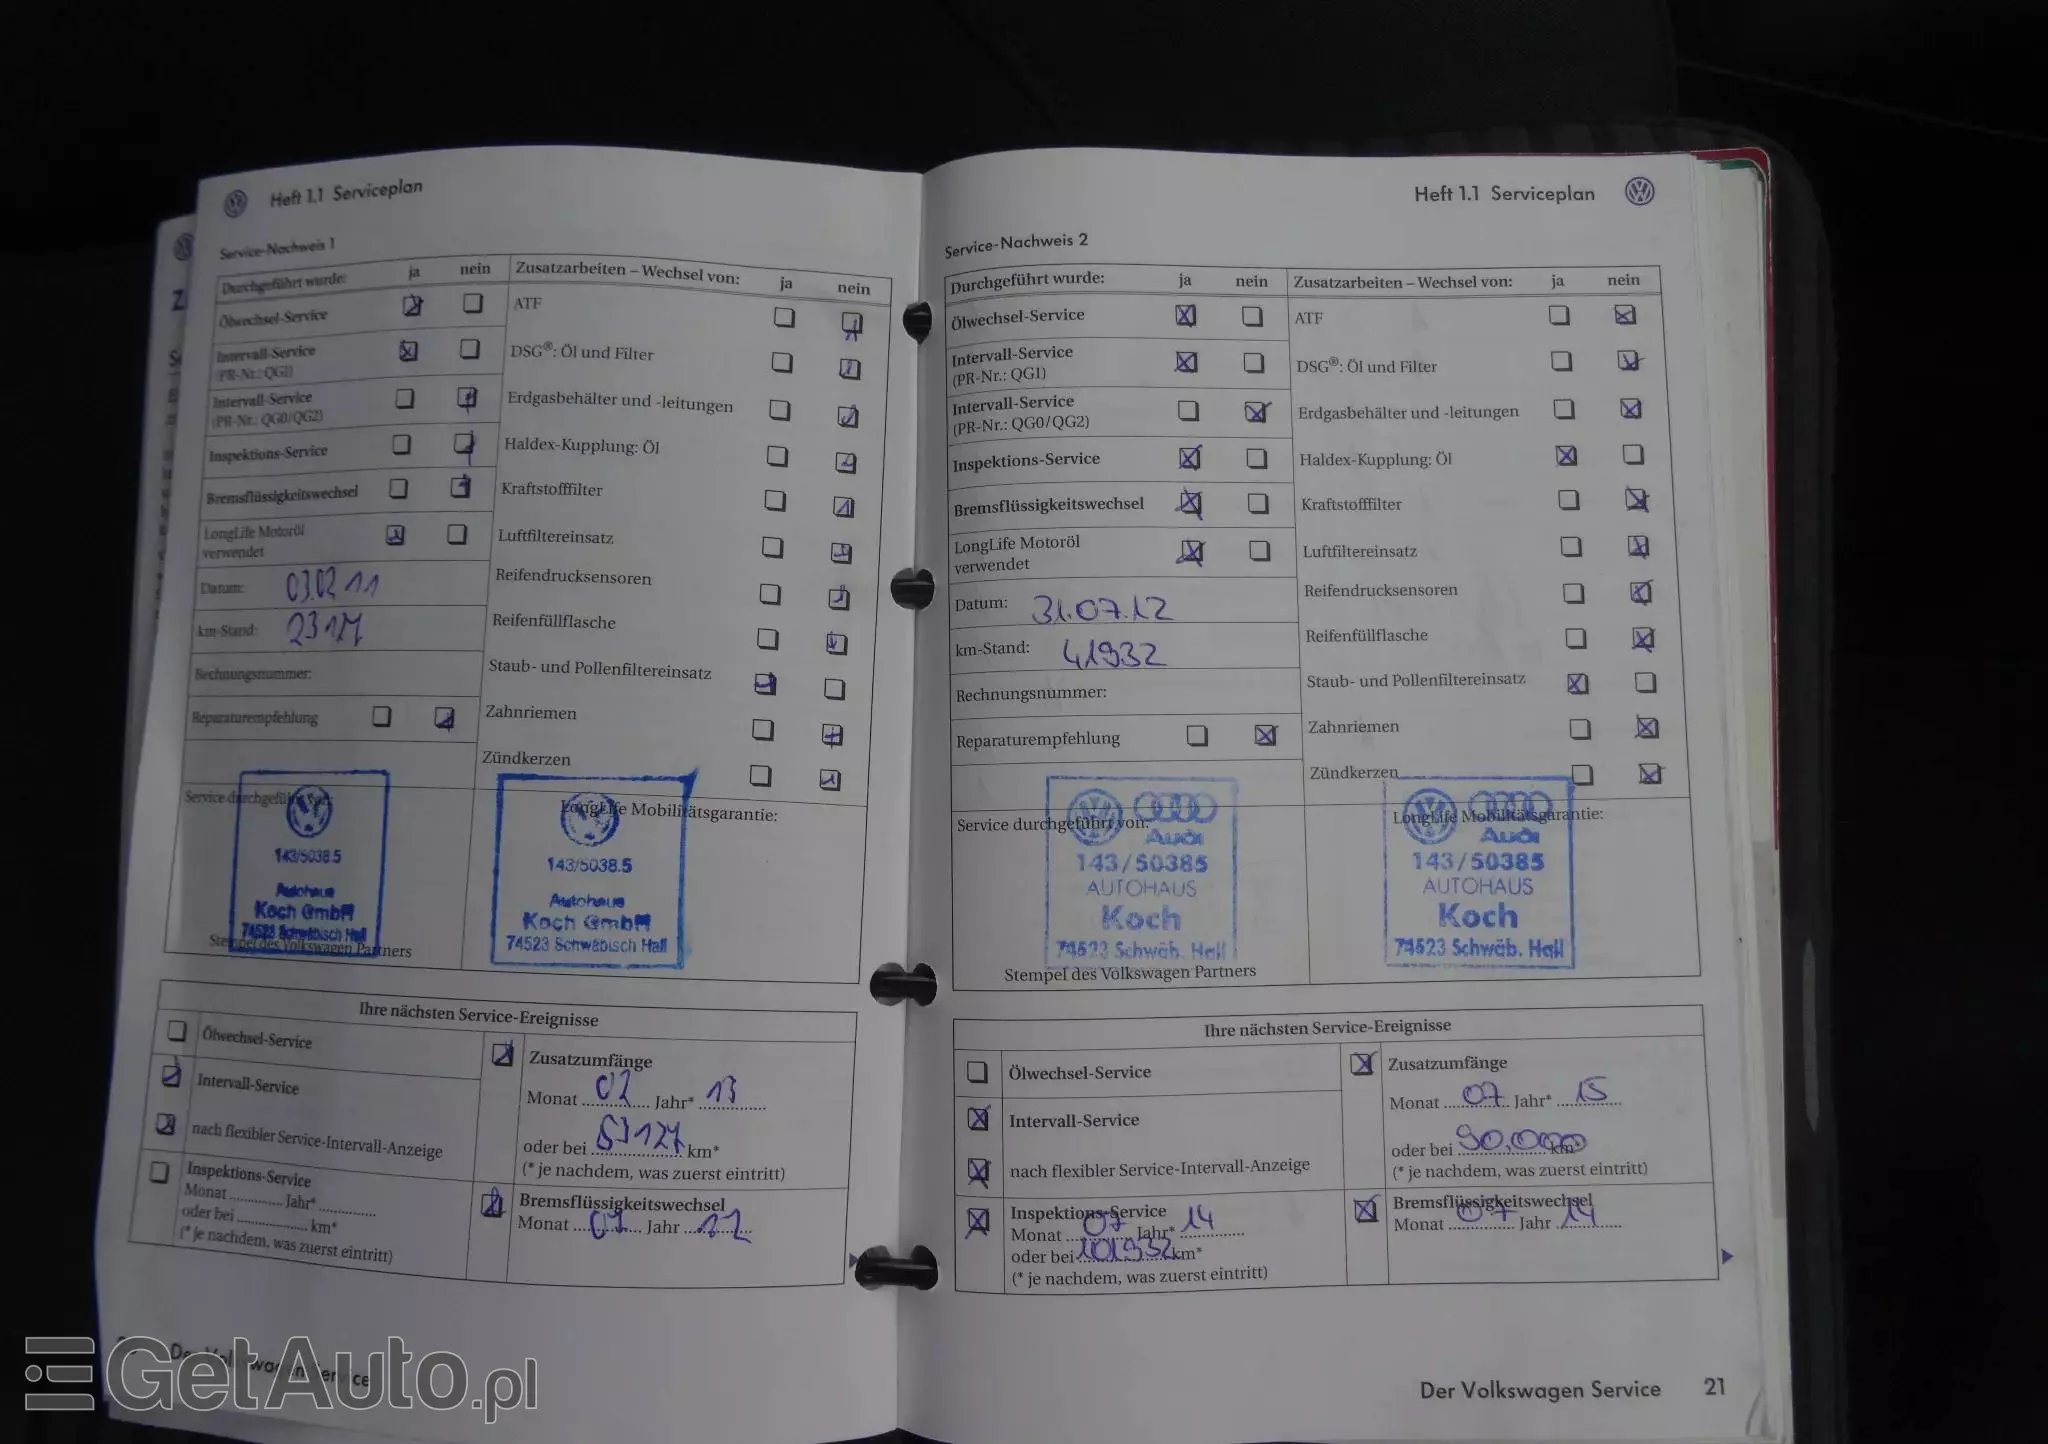 Heft 1.1 Serviceplan
Service-Nachweis 1
Durchgeführt wurde: ja nein
Ölwechsel-Service
Intervall-Service
(PR-Nr.: QG1)
Intervall-Service
(PR-Nr.: QG0/QG2)
Inspektions-Service
Bremsflüssigkeitswechsel
LongLife Motoröl
verwendet
Datum: 03.02 11
km-Stand: 23127
Rechnungsnummer:
Reparaturempfehlung
Zusatzarbeiten – Wechsel von: ja nein
ATF
DSG®: Öl und Filter
Erdgasbehälter und -leitungen
Haldex-Kupplung: Öl
Kraftstofffilter
Luftfiltereinsatz
Reifendrucksensoren
Reifenfüllflasche
Staub- und Pollenfiltereinsatz
Zahnriemen
Zündkerzen
Service durchgeführt von:
143/5038.5
Autohaus
Koch GmbH
74523 Schwäbisch Hall
Stempel des Volkswagen Partners
LongLife Mobilitätsgarantie:
143/5038.5
Autohaus
Koch GmbH
74523 Schwäbisch Hall
Ihre nächsten Service-Ereignisse
Ölwechsel-Service
Intervall-Service
nach flexibler Service-Intervall-Anzeige
Inspektions-Service
Monat ............ Jahr* ............
oder bei ............ km*
(* je nachdem, was zuerst eintritt)
Zusatzumfänge
Monat 02 Jahr* 13
oder bei 83127 km*
(* je nachdem, was zuerst eintritt)
Bremsflüssigkeitswechsel
Monat 02 Jahr 12
Der Volkswagen Service
Heft 1.1 Serviceplan
Service-Nachweis 2
Durchgeführt wurde: ja nein
Ölwechsel-Service
Intervall-Service
(PR-Nr.: QG1)
Intervall-Service
(PR-Nr.: QG0/QG2)
Inspektions-Service
Bremsflüssigkeitswechsel
LongLife Motoröl
verwendet
Datum: 31.07.12
km-Stand: 41932
Rechnungsnummer:
Reparaturempfehlung
Zusatzarbeiten – Wechsel von: ja nein
ATF
DSG®: Öl und Filter
Erdgasbehälter und -leitungen
Haldex-Kupplung: Öl
Kraftstofffilter
Luftfiltereinsatz
Reifendrucksensoren
Reifenfüllflasche
Staub- und Pollenfiltereinsatz
Zahnriemen
Zündkerzen
Service durchgeführt von:
Audi
143/50385
AUTOHAUS
Koch
74523 Schwäb. Hall
Stempel des Volkswagen Partners
LongLife Mobilitätsgarantie:
Audi
143/50385
AUTOHAUS
Koch
74523 Schwäb. Hall
Ihre nächsten Service-Ereignisse
Ölwechsel-Service
Intervall-Service
nach flexibler Service-Intervall-Anzeige
Inspektions-Service
Monat 07 Jahr* 14
oder bei 101932 km*
(* je nachdem, was zuerst eintritt)
Zusatzumfänge
Monat 07 Jahr* 15
oder bei 90.000 km*
(* je nachdem, was zuerst eintritt)
Bremsflüssigkeitswechsel
Monat 07 Jahr 14
Der Volkswagen Service 21
GetAuto.pl